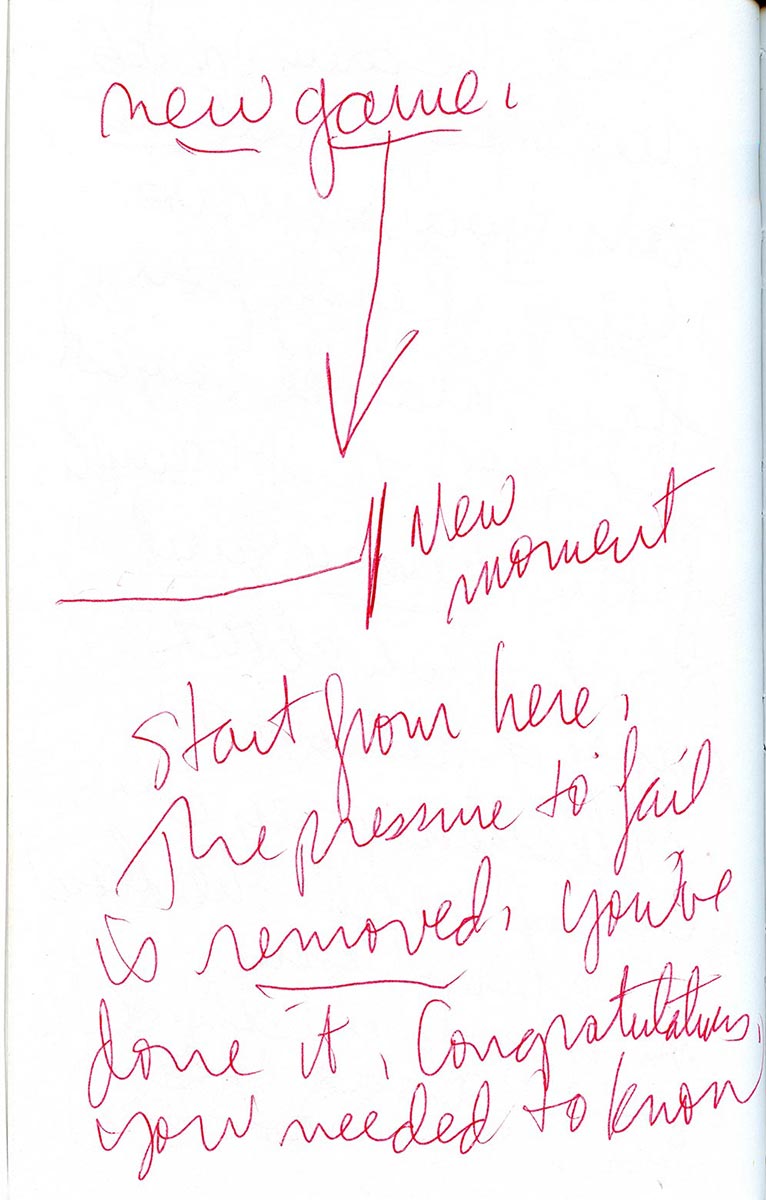 new game.
New
moment
Start from here.
The pressure to fail
is removed. You've
done it. Congratulations,
you needed to know